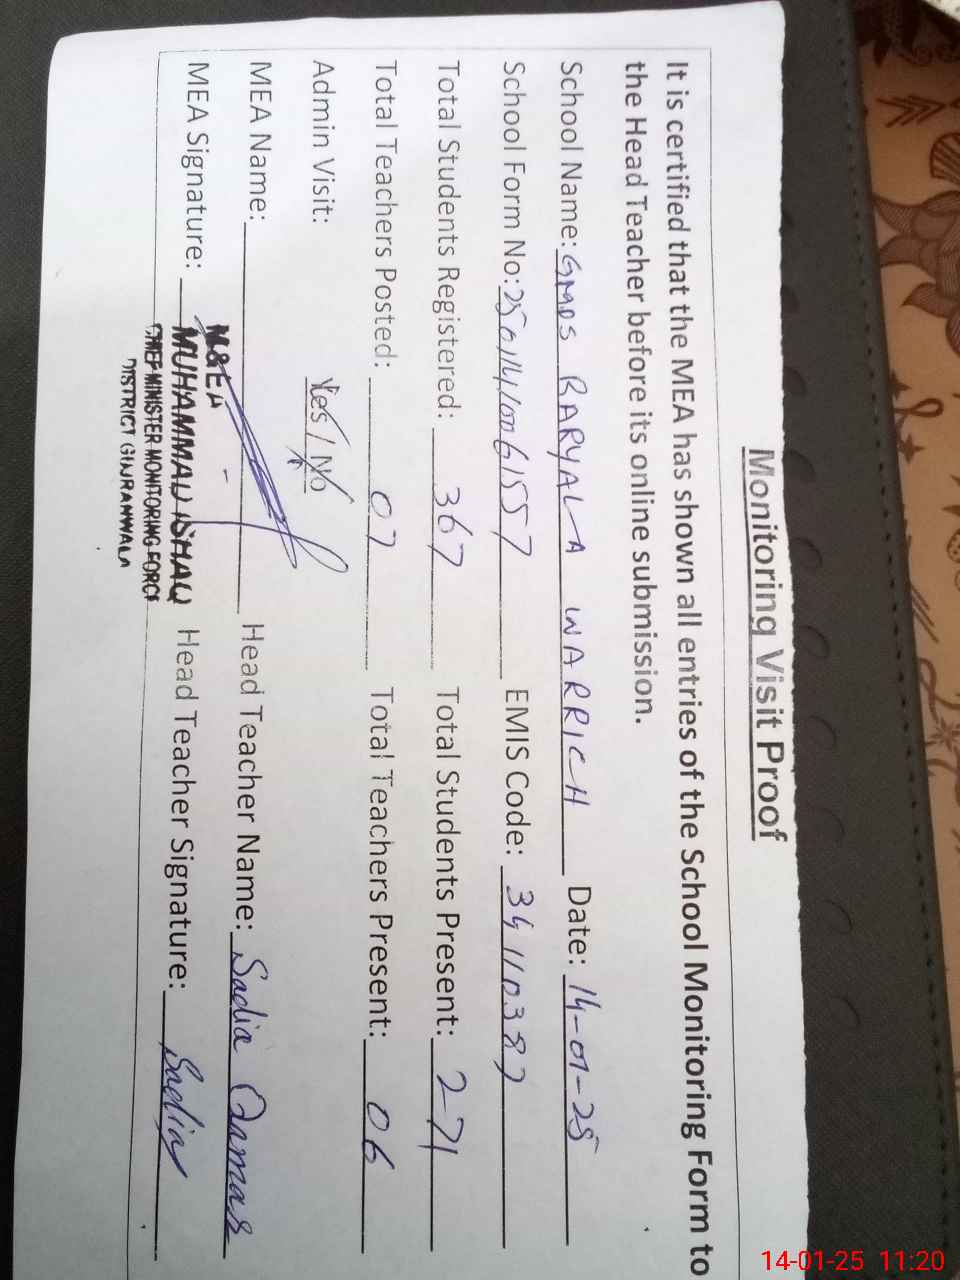 Monitoring Visit Proof
It is certified that the MEA has shown all entries of the School Monitoring Form to
the Head Teacher before its online submission.
School Name: GMPS BARYALA WARRICH Date: 14-01-25
School Form No: 25011410061557 EMIS Code: 34110387
Total Students Registered: 367 Total Students Present: 271
Total Teachers Posted: 07 Total Teachers Present: 06
Admin Visit: Yes / No
MEA Name: Head Teacher Name: Sadia Qamar
MEA Signature: Head Teacher Signature: Sadia
M&EA
MUHAMMAD ISHAQ
CHIEF MINISTER MONITORING FORCE
DISTRICT GUJRANWALA
14-01-25 11:20